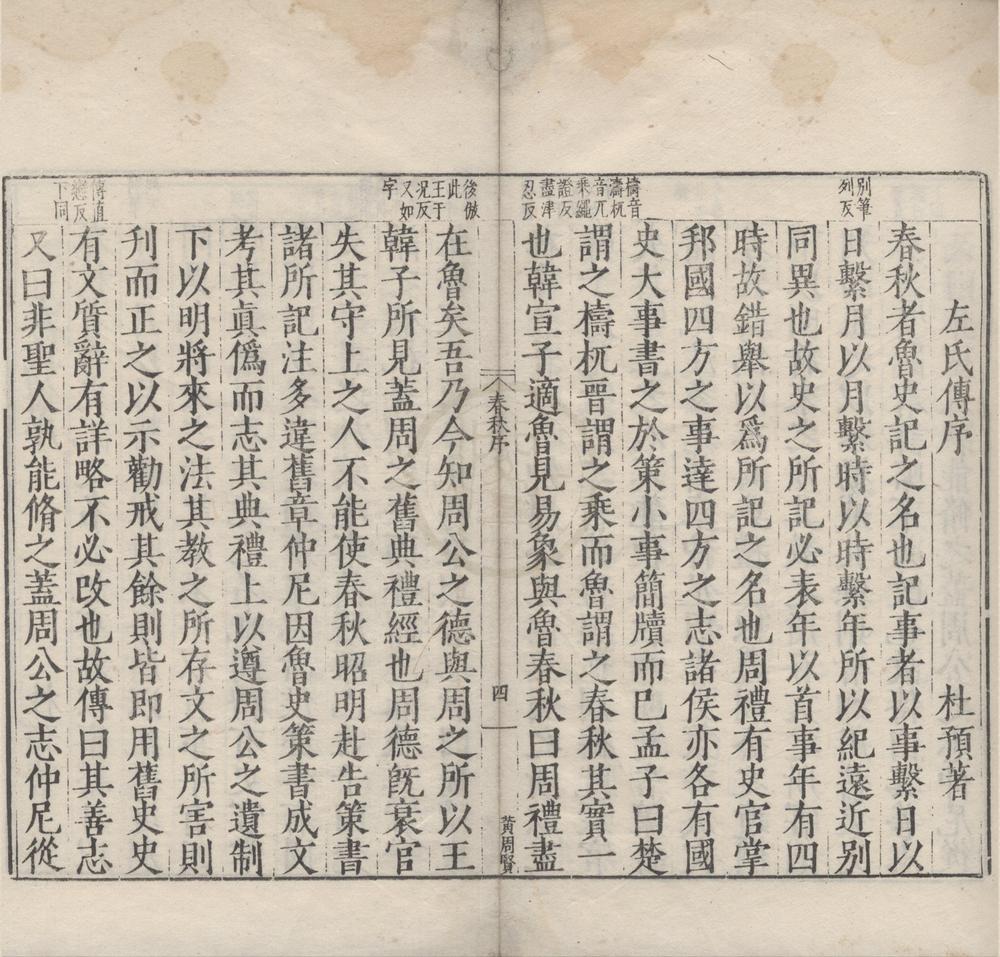 左氏傳序 杜預著
春秋者魯史記之名也記事者以事繫日以
日繫月以月繫時以時繫年所以紀遠近別
同異也故史之所記必表年以首事年有四
時故錯舉以爲所記之名也周禮有史官掌
邦國四方之事達四方之志諸侯亦各有國
史大事書之於策小事簡牘而已孟子曰楚
謂之檮杌晋謂之乘而魯謂之春秋其實一
也韓宣子適魯見易象與魯春秋曰周禮盡
在魯矣吾乃今知周公之德與周之所以王
韓子所見蓋周之舊典禮經也周德既衰官
失其守上之人不能使春秋昭明赴告策書
諸所記注多違舊章仲尼因魯史策書成文
考其眞僞而志其典禮上以遵周公之遺制
下以明將來之法其教之所存文之所害則
刋而正之以示勸戒其餘則皆即用舊史史
有文質辭有詳略不必改也故傳曰其善志
又曰非聖人孰能脩之蓋周公之志仲尼從
別筆
列反
檮音
濤杌
音兀
乘繩
證反
盡津
忍反
後倣
此
王于
况反
又如
字
傳直
戀反
下同
春秋序
四
黃周賢